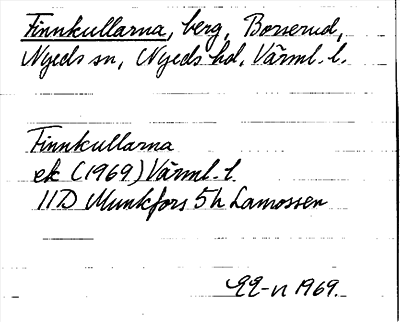 Finnkullarna, berg, Borserud,
Nyeds sn, Nyeds hd, Värml. l.
Finnkullarna
ek (1969) Värml. l.
11D Munkfors 5h Lamossen
1969.